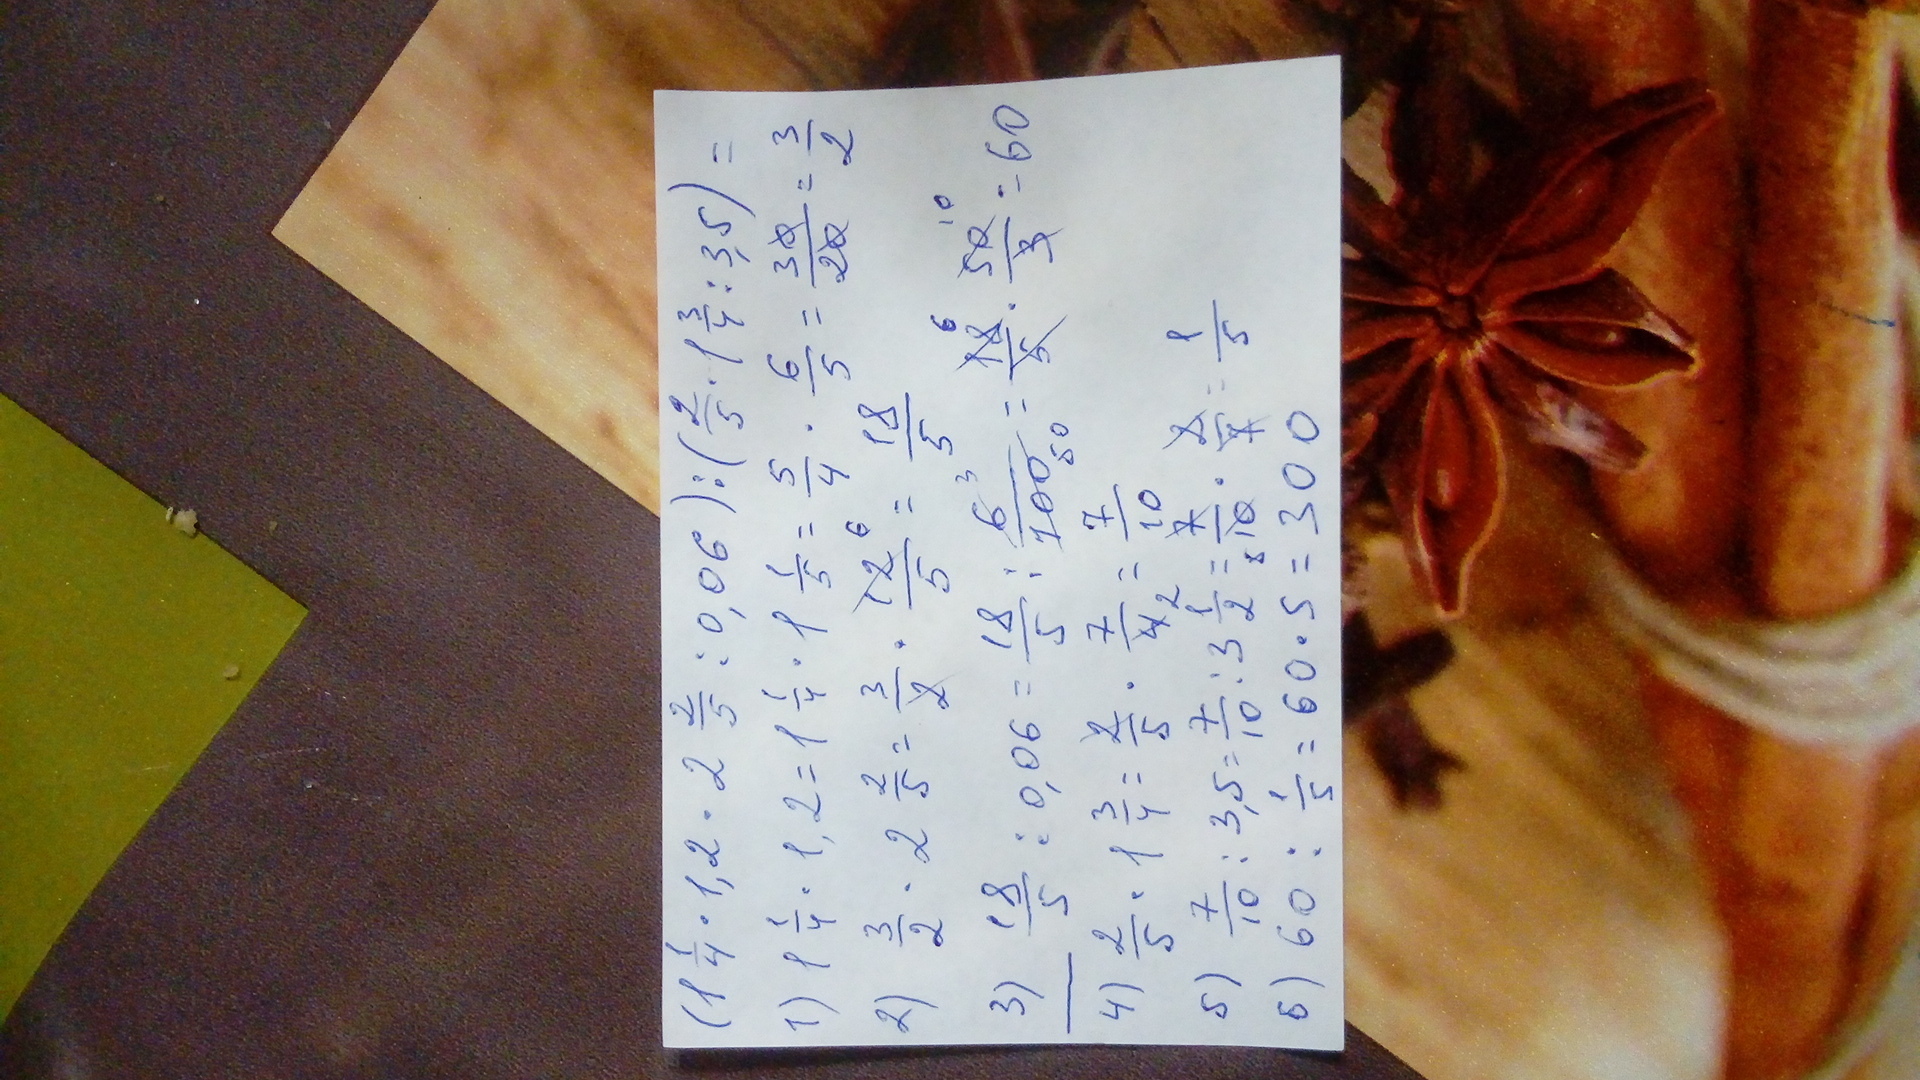 (1 1/4 · 1,2 · 2 2/5 : 0,06) : (2/5 · 1 3/4 : 3,5) =
1) 1 1/4 · 1,2 = 1 1/4 · 1 1/5 = 5/4 · 6/5 = 30/20 = 3/2
2) 3/2 · 2 2/5 = 3/2 · 12/5 6 = 18/5
3) 18/5 : 0,06 = 18/5 : 6/100 3 50 = 18/5 6 · 50/3 10 = 60
4) 2/5 · 1 3/4 = 2/5 · 7/4 2 = 7/10
5) 7/10 : 3,5 = 7/10 : 3 1/2 = 7/10 5 · 2/7 = 1/5
6) 60 : 1/5 = 60 · 5 = 300